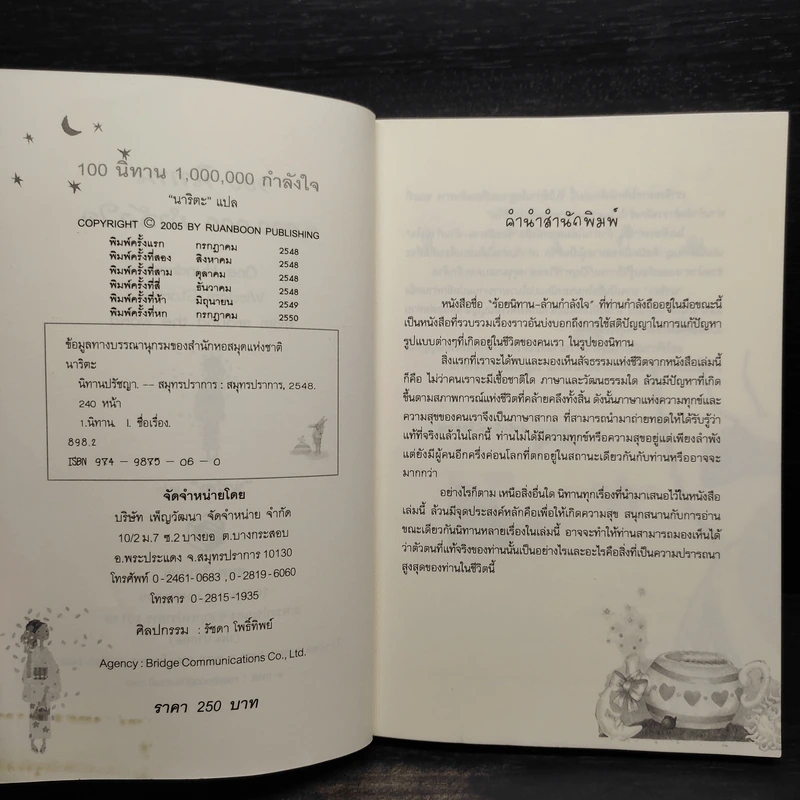 100 นิทาน 1,000,000 กำลังใจ
"นาริตะ" แปล
COPYRIGHT © 2005 BY RUANBOON PUBLISHING
พิมพ์ครั้งแรก กรกฎาคม 2548
พิมพ์ครั้งที่สอง สิงหาคม 2548
พิมพ์ครั้งที่สาม ตุลาคม 2548
พิมพ์ครั้งที่สี่ ธันวาคม 2548
พิมพ์ครั้งที่ห้า มิถุนายน 2549
พิมพ์ครั้งที่หก กรกฎาคม 2550
ข้อมูลทางบรรณานุกรมของสำนักหอสมุดแห่งชาติ
นาริตะ
นิทานปรัชญา. -- สมุทรปราการ : สมุทรปราการ, 2548.
240 หน้า
1.นิทาน. I. ชื่อเรื่อง.
898.2
ISBN 974 - 9875 - 06 - 0
จัดจำหน่ายโดย
บริษัท เพ็ญวัฒนา จัดจำหน่าย จำกัด
10/2 ม.7 ซ.2 บางยอ ต.บางกระสอบ
อ.พระประแดง จ.สมุทรปราการ 10130
โทรศัพท์ 0-2461-0683 ,0-2819-6060
โทรสาร 0-2815-1935
ศิลปกรรม : รัชดา โพธิ์ทิพย์
Agency : Bridge Communications Co., Ltd.
ราคา 250 บาท
คำนำสำนักพิมพ์
หนังสือชื่อ "ร้อยนิทาน-ล้านกำลังใจ" ที่ท่านกำลังถืออยู่ในมือขณะนี้
เป็นหนังสือที่รวบรวมเรื่องราวอันบ่งบอกถึงการใช้สติปัญญาในการแก้ปัญหา
รูปแบบต่างๆที่เกิดอยู่ในชีวิตของคนเรา ในรูปของนิทาน
สิ่งแรกที่เราจะได้พบและมองเห็นสัจธรรมแห่งชีวิตจากหนังสือเล่มนี้
ก็คือ ไม่ว่าคนเราจะมีเชื้อชาติใด ภาษาและวัฒนธรรมใด ล้วนมีปัญหาที่เกิด
ขึ้นตามสภาพการณ์แห่งชีวิตที่คล้ายคลึงทั้งสิ้น ดังนั้นภาษาแห่งความทุกข์และ
ความสุขของคนเราจึงเป็นภาษาสากล ที่สามารถนำมาถ่ายทอดให้ได้รับรู้ว่า
แท้ที่จริงแล้วในโลกนี้ ท่านไม่ได้มีความทุกข์หรือความสุขอยู่แต่เพียงลำพัง
แต่ยังมีผู้คนอีกครึ่งค่อนโลกที่ตกอยู่ในสถานะเดียวกันกับท่านหรืออาจจะ
มากกว่า
อย่างไรก็ตาม เหนือสิ่งอื่นใด นิทานทุกเรื่องที่นำมาเสนอไว้ในหนังสือ
เล่มนี้ ล้วนมีจุดประสงค์หลักคือเพื่อให้เกิดความสุข สนุกสนานกับการอ่าน
ขณะเดียวกันนิทานหลายเรื่องในเล่มนี้ อาจจะทำให้ท่านสามารถมองเห็นได้
ว่าตัวตนที่แท้จริงของท่านนั้นเป็นอย่างไรและอะไรคือสิ่งที่เป็นความปรารถนา
สูงสุดของท่านในชีวิตนี้